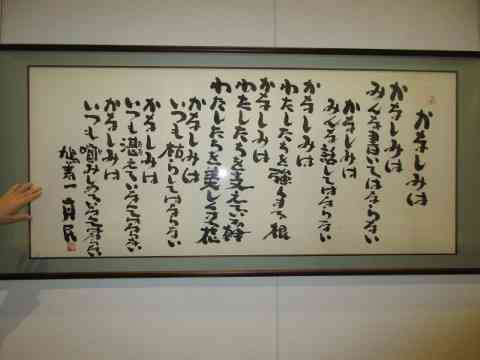 かなしみは
かなしみは
みんな書いてはならない
かなしみは
みんな話してはならない
かなしみは
わたしたちを強くする根
かなしみは
わたしたちを支えている幹
わたしたちを美しくする花
かなしみは
いつも枯らしてはならない
かなしみは
いつも湛えていなくてはならない
かなしみは
いつも噛みしめていなくてはならない
真民